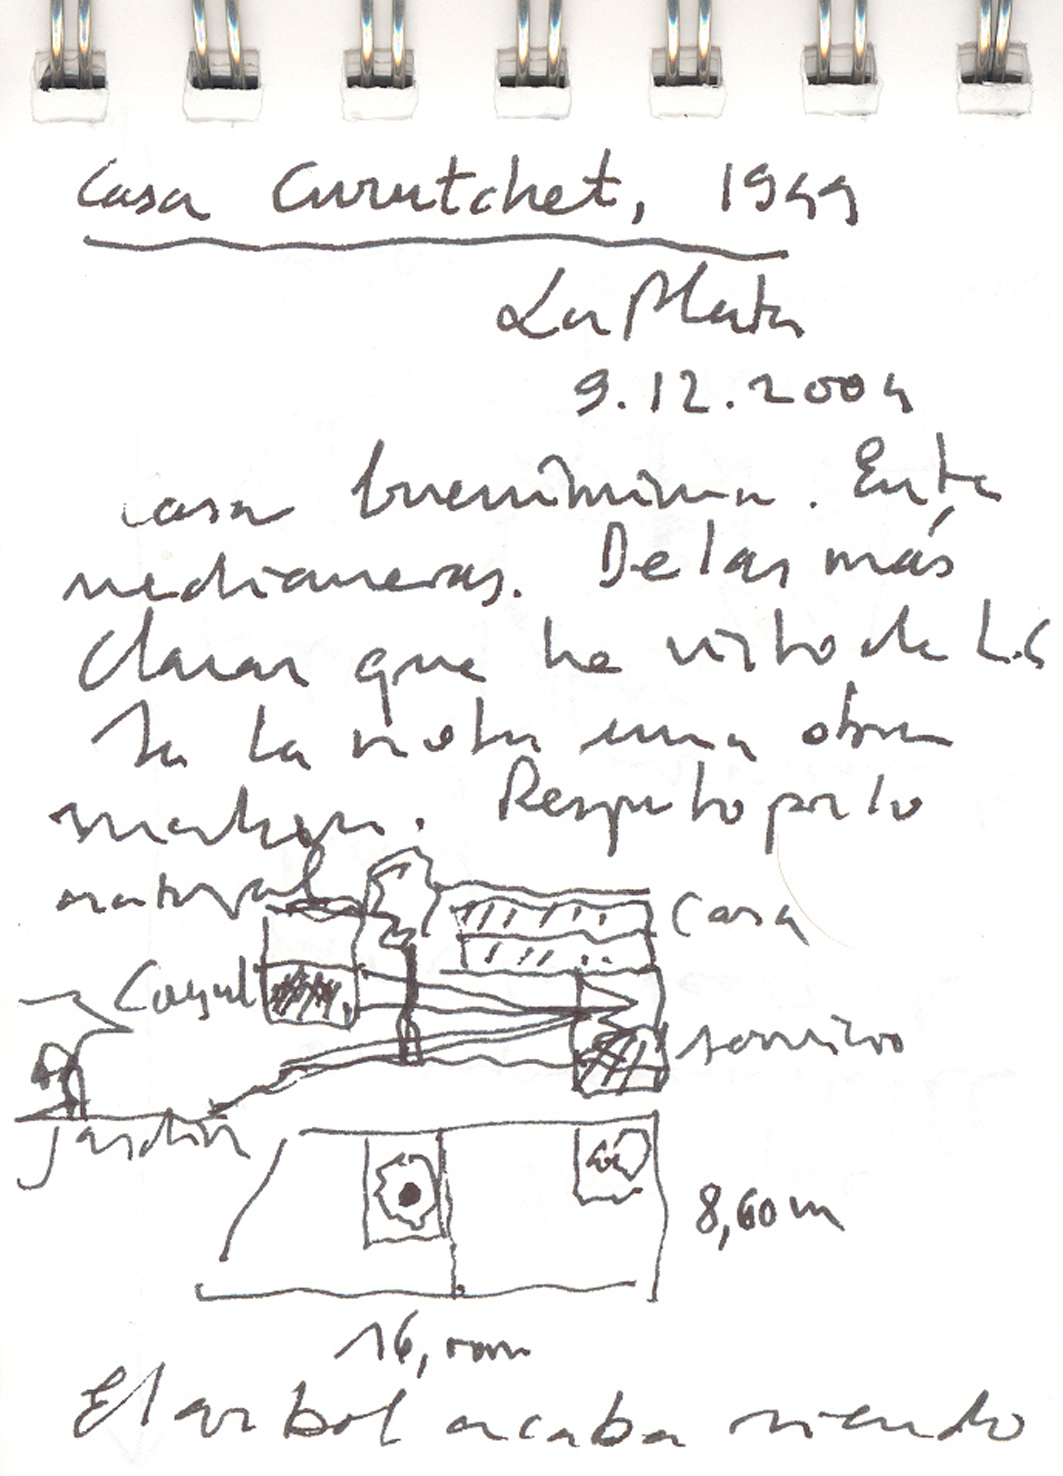 Casa Curutchet, 1949
La Plata
9.12.2004
casa buenísima. Entre
medianeras. De las más
claras que he visto de L.C
una obra
Respeto por lo
natural
casa
Consult
servicio
jardín
8,60 m
16,
El arbol acaba siendo